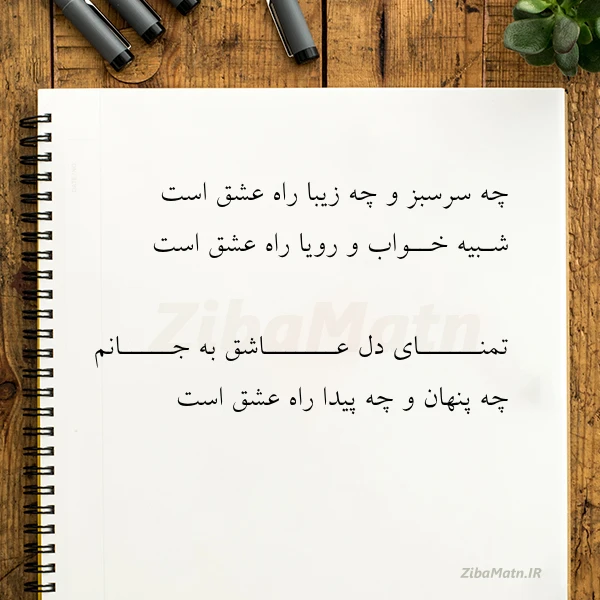 چه سرسبز و چه زیبا راه عشق است
شــبیه خـــواب و رویا راه عشق است
ZibaMatn
تمنـــــــای دل عـــــــاشق به جـــــانم
چه پنهان و چه پیدا راه عشق است
ZibaMatn.IR